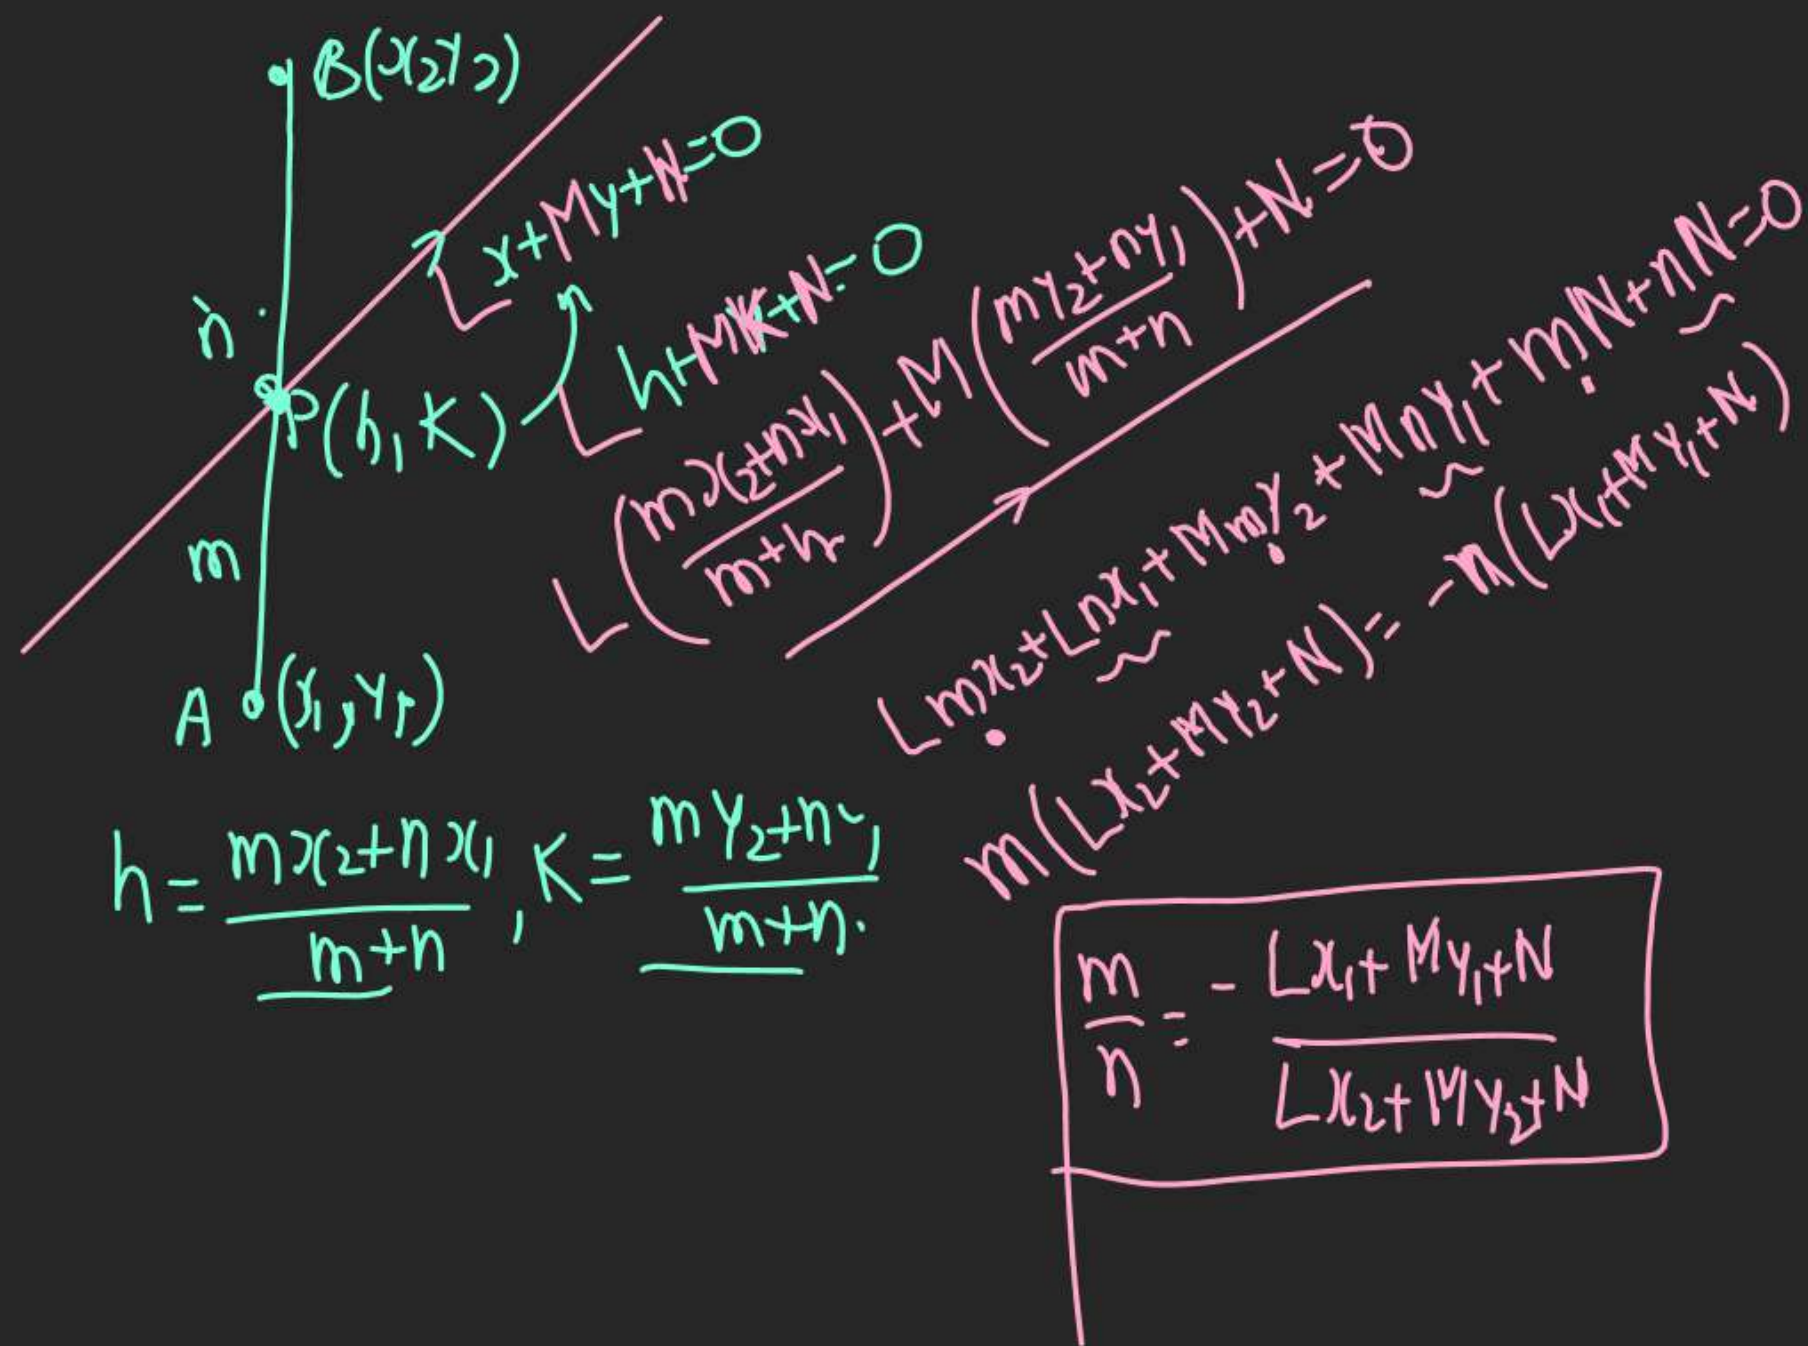 B(x₂y₂)
Lx+My+N=0
n
n
Lh+MK+N=0
P(h,K)
m
A (x₁,y₁)
L(mx₂+nx₁/m+n)+M(my₂+ny₁/m+n)+N=0
Lmx₂+Lnx₁+Mmy₂+Mny₁+mN+nN=0
m(Lx₂+My₂+N)=-n(Lx₁+My₁+N)
h=mx₂+nx₁/m+n, K=my₂+ny₁/m+n.
m/n=-Lx₁+My₁+N/Lx₂+My₂+N